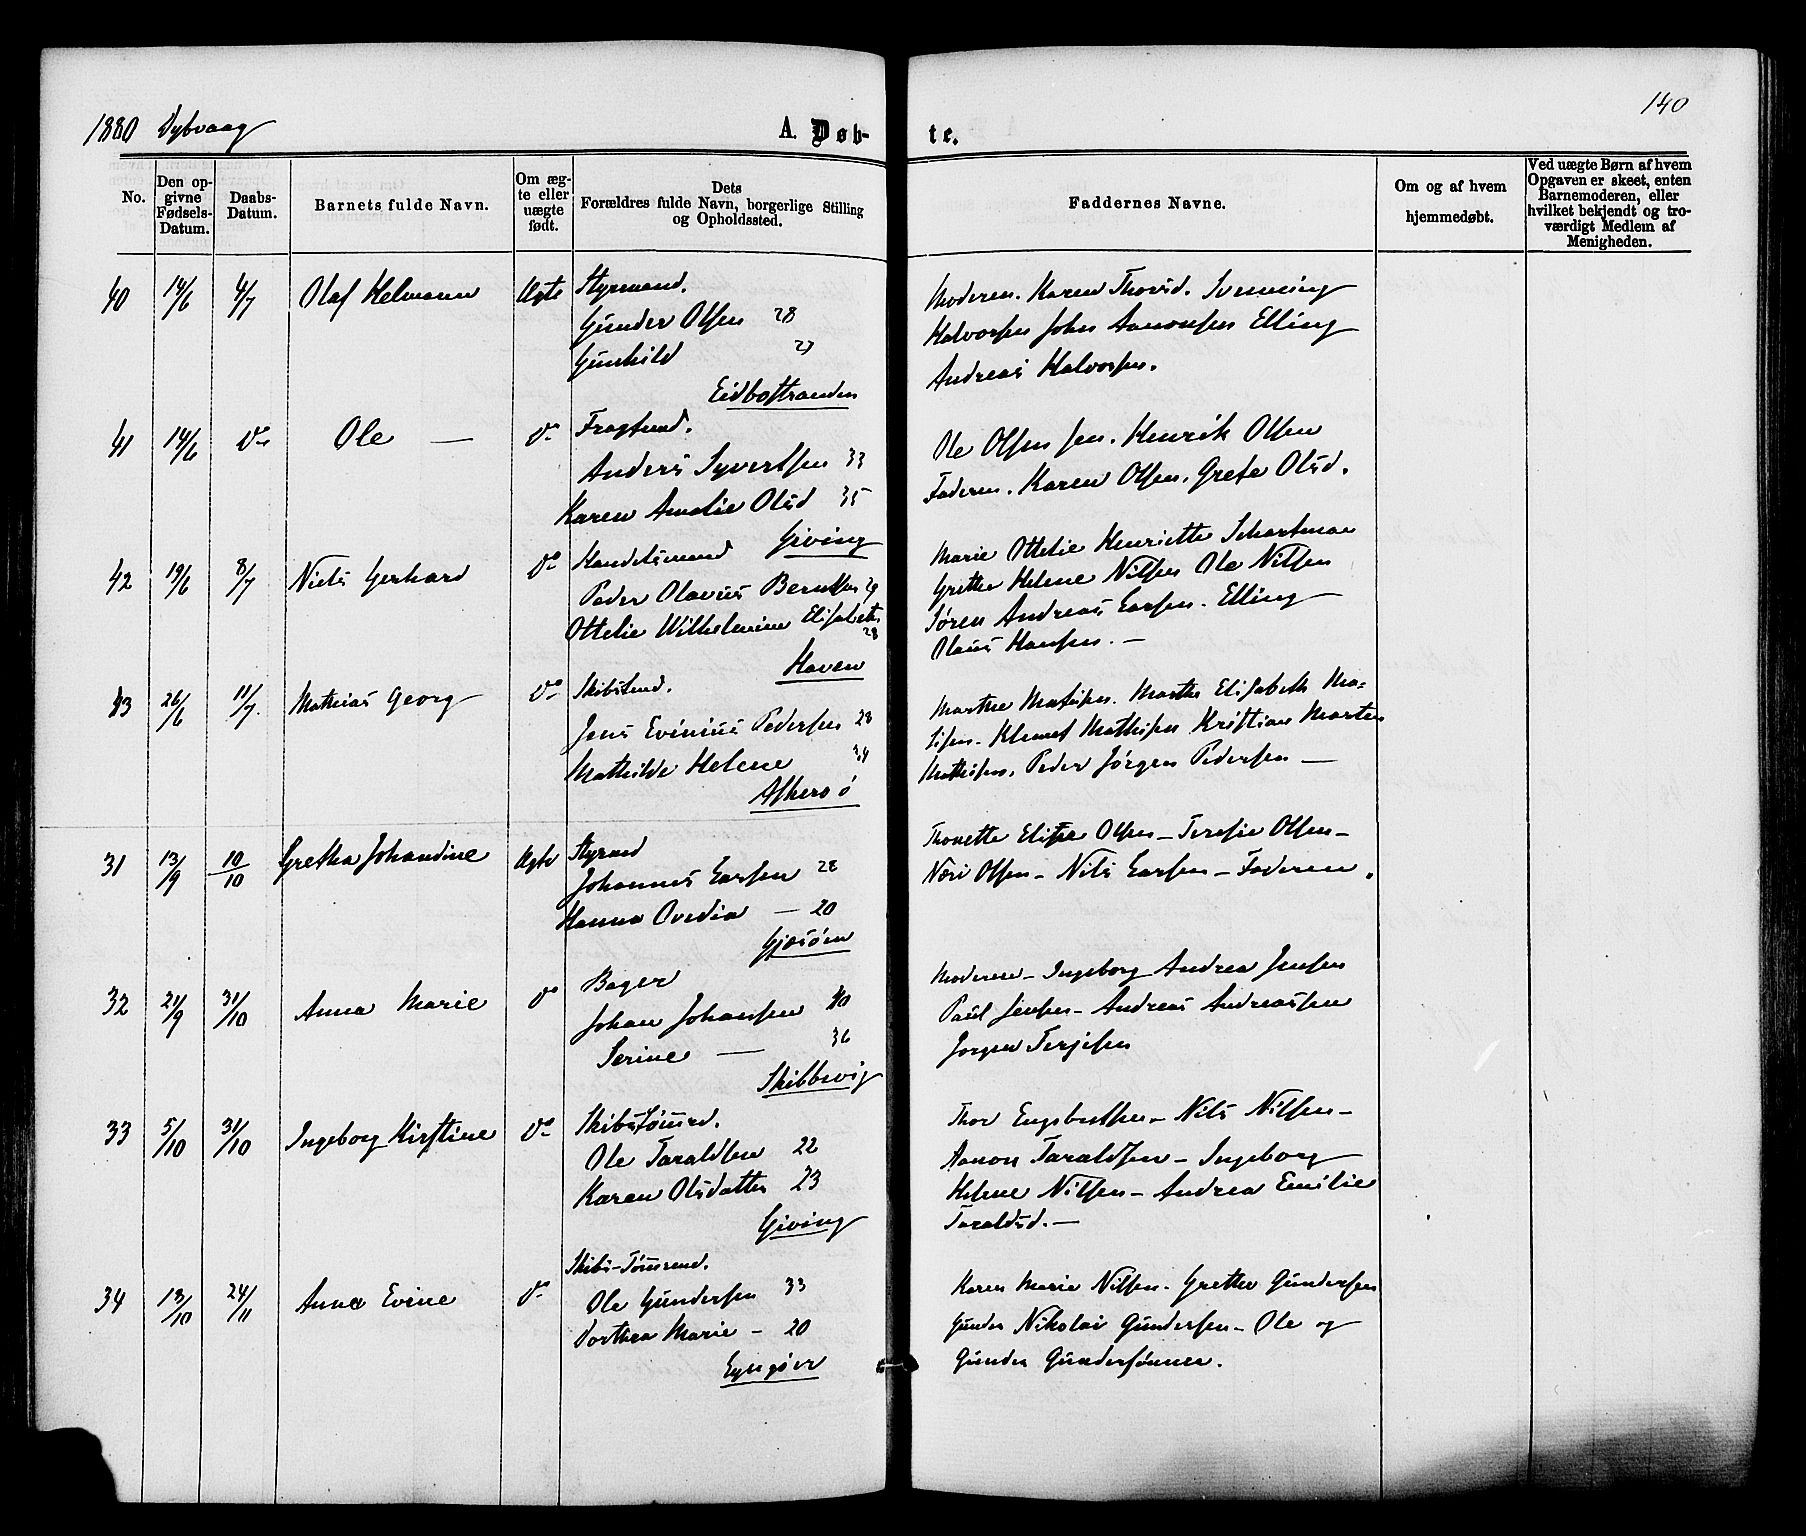 1880 Dybvaag
A. Døb-
te.
140
No.
Den op-
givne
Fødsels-
Datum.
Daabs-
Datum.
Barnets fulde Navn.
Om æg-
te eller
uægte
født.
Dets
Forældres fulde Navn, borgerlige Stilling
og Opholdssted.
Faddernes Navne.
Om og af hvem
hjemmedøbt.
Ved uægte Børn af hvem
Opgaven er skeet, enten
Barnemoderen, eller
hvilket bekjendt og tro-
værdigt Medlem af
Menigheden.
40 14/6 4/7 Olaf Helmann Ægte Styrmand.
Gunder Olsen 28
Gunhild 27
Eidbostranden
Moderen. Karen Thovsd. Svenning
Halvorsen John Aanonsen Elling
Andreas Halvorsen.
41 14/6 Do Ole — Do
Anders Syvertsen 33
Karen Amalie Olsd 35
Giving
Ole Olsen sen. Henrik Olsen
Faderen. Karen Olsen. Grete Olsd.
42 19/6 8/7 Niels Gerhard Do Handelsmand
Peder Olavus Berntsen 29
Ottelie Wilhelmine Elisabeth 28
Haven
Marie Ottelie Henriette Schartman
Grethe Helene Nilsen Ole Nilsen
Søren Andreas Larsen. Elling
Olaus Hansen. —
43 26/6 11/7. Mathias Georg Do Skibstmd.
Jens Evinius Pedersen 28
Mathilde Helene 24
Askerø
Marthe Elisabeth Ma-
Mathisen Kristian Marten
Mathisen. Peder Jørgen Pedersen —
31 13/9 10/10 Gretha Johandine Ægte Styrmd
Johannes Larsen 28
Hanna Ovedia — 20
Gjesøen
Thonette Elise Olsen — Teresie Olsen —
Næri Olsen — Nils Larsen — Faderen.
32 21/9 31/10 Anna Marie Do Bager
Johan Johansen 40
Serine — 36
Skibbevig
Moderen — Ingeborg Andrea Jensen
Paul Jensen — Andreas Andreassen
Jørgen Terjesen
33 5/10 31/10 Ingeborg Kirstine Do Skibstømrd.
Ole Taraldsen 22
Karen Olsdatter 23
Giving
Thor Engebretsen — Nils Nilsen —
Aanon Taraldsen — Ingeborg
Helene Nilsen — Andrea Emilie
Taraldsd. —
34 13/10 24/11 Anna Evine Do Skibs-Tømrmd.
Ole Gundersen 33
Dorthea Marie — 20
Lyngøer
Karen Marie Nilsen. Grethe Gundersen
Gunder Nikolai Gundersen — Ole og
Gunder Gundersønner.